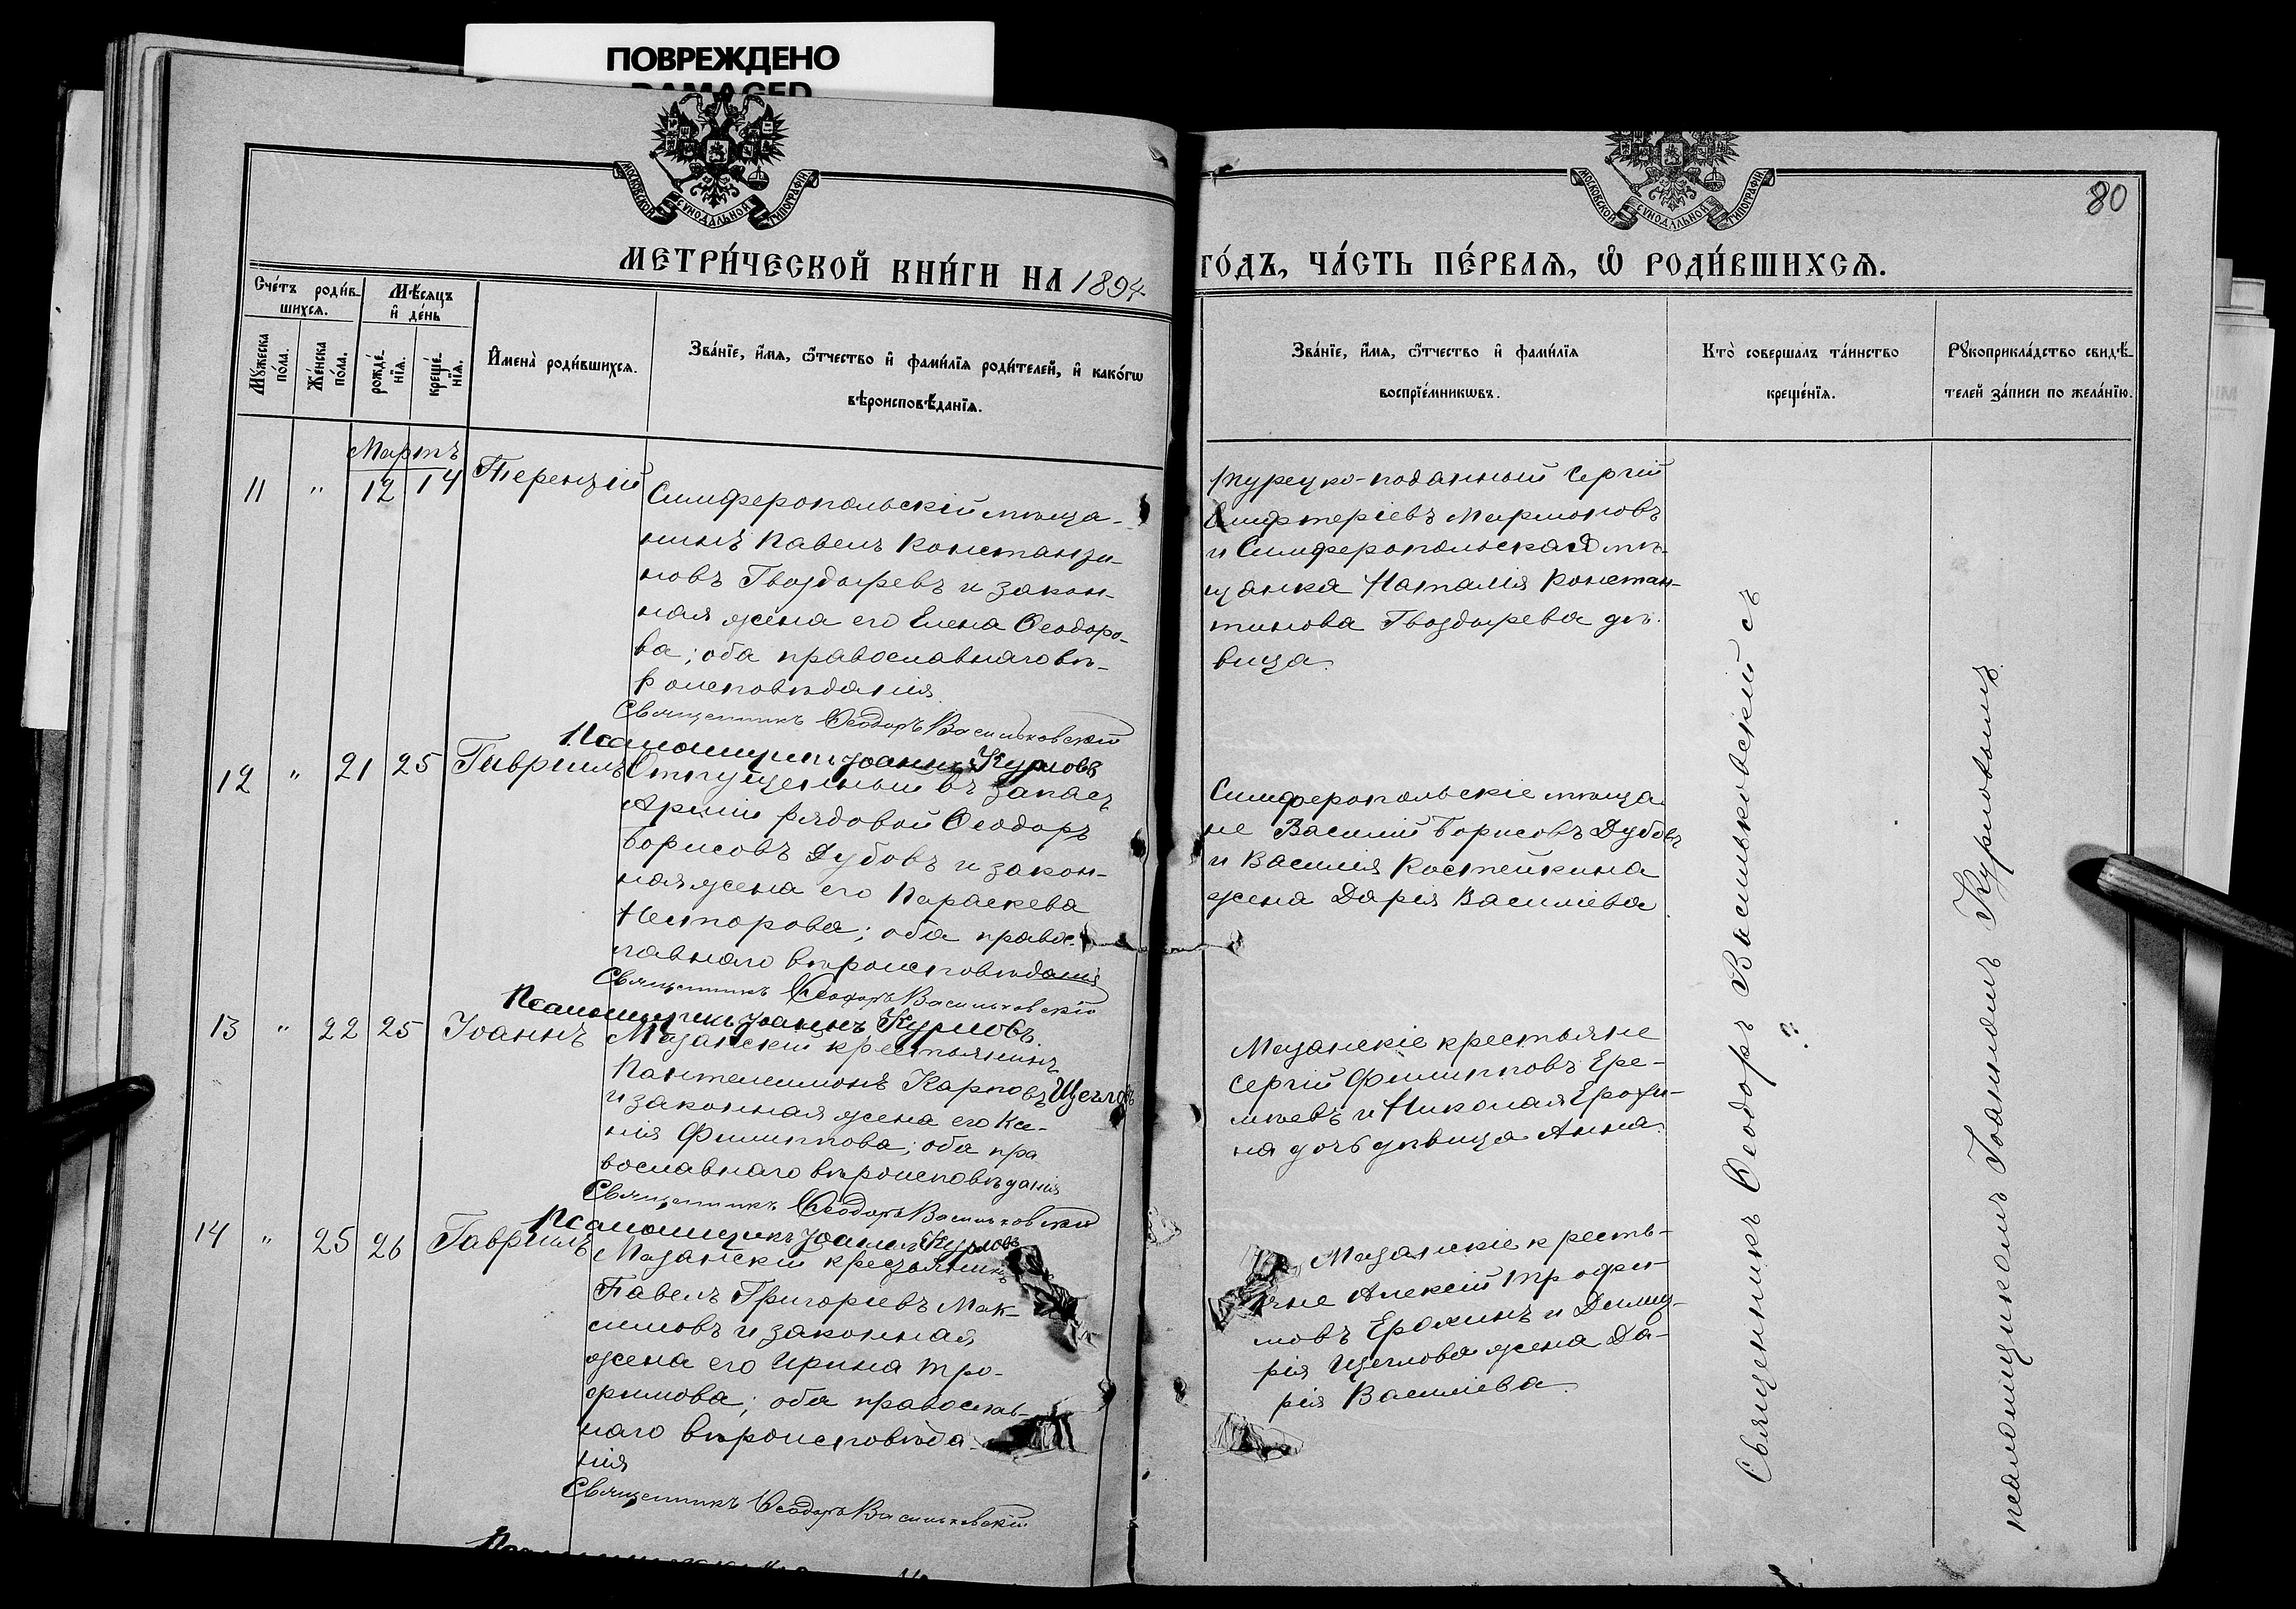 ПОВРЕЖДЕНО
DAMAGED
МОСКОВСКОЙ СѴНОДАЛЬНОЙ ТИПОГРАФІИ
МОСКОВСКОЙ СѴНОДАЛЬНОЙ ТИПОГРАФІИ
80
МЕТРИ́ЧЕСКОЙ КНИ́ГИ НА 1894
ГО́ДЪ, ЧА́СТЬ ПЕ́РВАЯ, Ѡ РОДИ́ВШИХСЯ.
Сче́тъ роди́в-
шихся.
Мꙋ́жеска по́ла.
Же́нска по́ла.
Мѣ́сяцъ
и҆ день
рожде́-
нїя.
креще́-
нїя.
И҆мена̀ роди́вшихся.
Зва́нїе, и҆́мя, ѻ҆́тчество и҆ фами́лїя роди́телей, и҆ како́гѡ
вѣроисповѣ́данїя.
Зва́нїе, и҆́мя, ѻ҆́тчество и҆ фами́лїя
воспрїе́мникѡвъ.
Кто̀ соверша́лъ та́инство
креще́нїя.
Рꙋкоприкла́дство свидѣ́-
телей за́писи по жела́нїю.
Мартъ
11 " 12 14 Терентій
Симферопольскій мѣща-
нинъ Павелъ Константи-
новъ Гвоздыревъ и закон-
ная жена его Елена Ѳеодоро-
ва; оба православнаго вѣ-
роисповѣданія
Священникъ Ѳеодоръ Васильковскій
Псаломщикъ Іоаннъ Курловъ
Турецко-поданный Сергій
Мармоновъ
и Симферопольская мѣ-
щанка Наталія Констан-
тинова Гвоздырева дѣ-
вица.
12 " 21 25 Гавріилъ
Отпущенный въ запасъ
Арміи рядовой Ѳеодоръ
Борисовъ Дубовъ и закон-
ная жена его Параскева
Несторова; оба правос-
лавнаго вѣроисповѣданія
Священникъ Ѳеодоръ Васильковскій
Псаломщикъ Іоаннъ Курловъ
Симферопольскіе мѣща-
не Василій Борисовъ Дубовъ
и Василія Костейкина
жена Дарія Васильева
13 " 22 25 Іоаннъ
Мазанскій крестьянинъ
Пантелеимонъ Карповъ Щегловъ
и законная жена его Ксе-
нія Филиппова; оба пра
вославнаго вѣроисповѣданія
Священникъ Ѳеодоръ Васильковскій
Псаломщикъ Іоаннъ Курловъ
Мазанскіе крестьяне
Сергій Филипповъ Ере-
мѣевъ и Николая Ерохи-
на дочь дѣвица Анна.
14 " 25 26 Гавріилъ
Мазанскій крестьянинъ
Павелъ Григорьевъ Мак-
симовъ и законная
жена его Ирина Тро-
фимова; оба православ-
наго вѣроисповѣда-
нія
Священникъ Ѳеодоръ Васильковскій
Мазанскіе кресть-
яне Алексій Трофи-
мовъ Ерохинъ и Димит-
рія Щеглова жена Да-
рія Васильева.
Священникъ Ѳеодоръ Васильковскій съ
псаломщикомъ Іоанномъ Курловымъ.